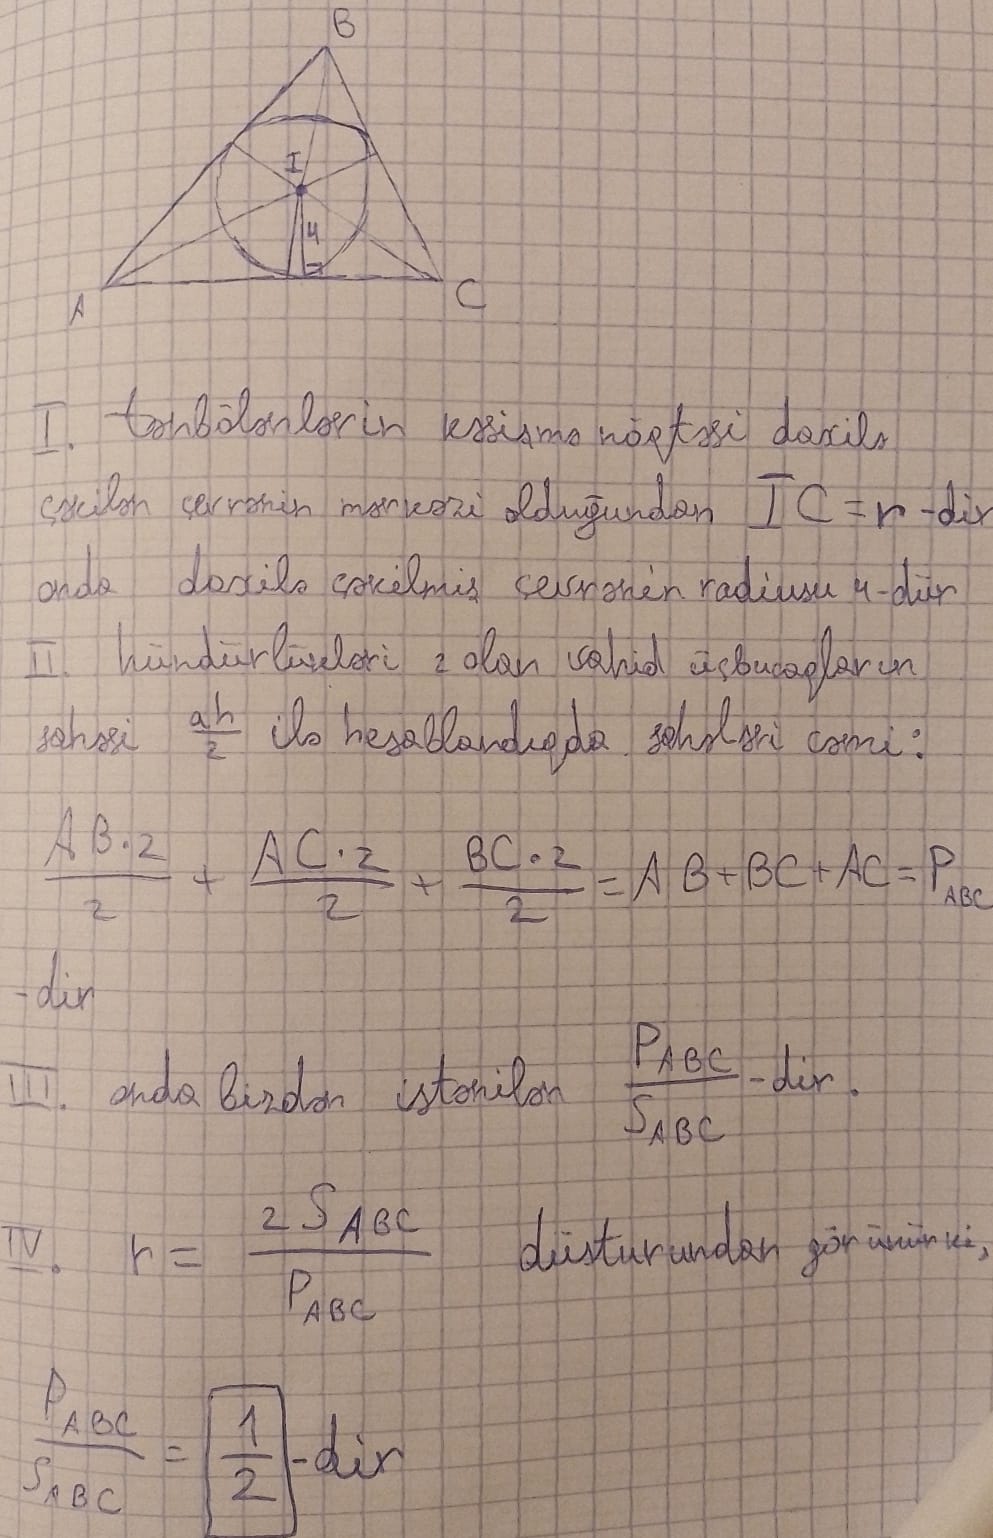 B
I
4
A
C
I. tənbölənlərin kəsişmə nöqtəsi daxilə
çəkilən çevrənin mərkəzi olduğundan IC=r-dir
onda daxilə çəkilmiş çevrənin radiusu 4-dür
II. hündürlükləri 2 olan vahid üçbucaqların
sahəsi ah/2 ilə hesablandıqda sahələri cəmi:
AB·2/2 + AC·2/2 + BC·2/2 = AB+BC+AC=P_ABC
-dir
III. onda bizdən istənilən P_ABC/S_ABC -dir.
IV. r = 2S_ABC/P_ABC düsturundan görünürki,
P_ABC/S_ABC = 1/2 -dir